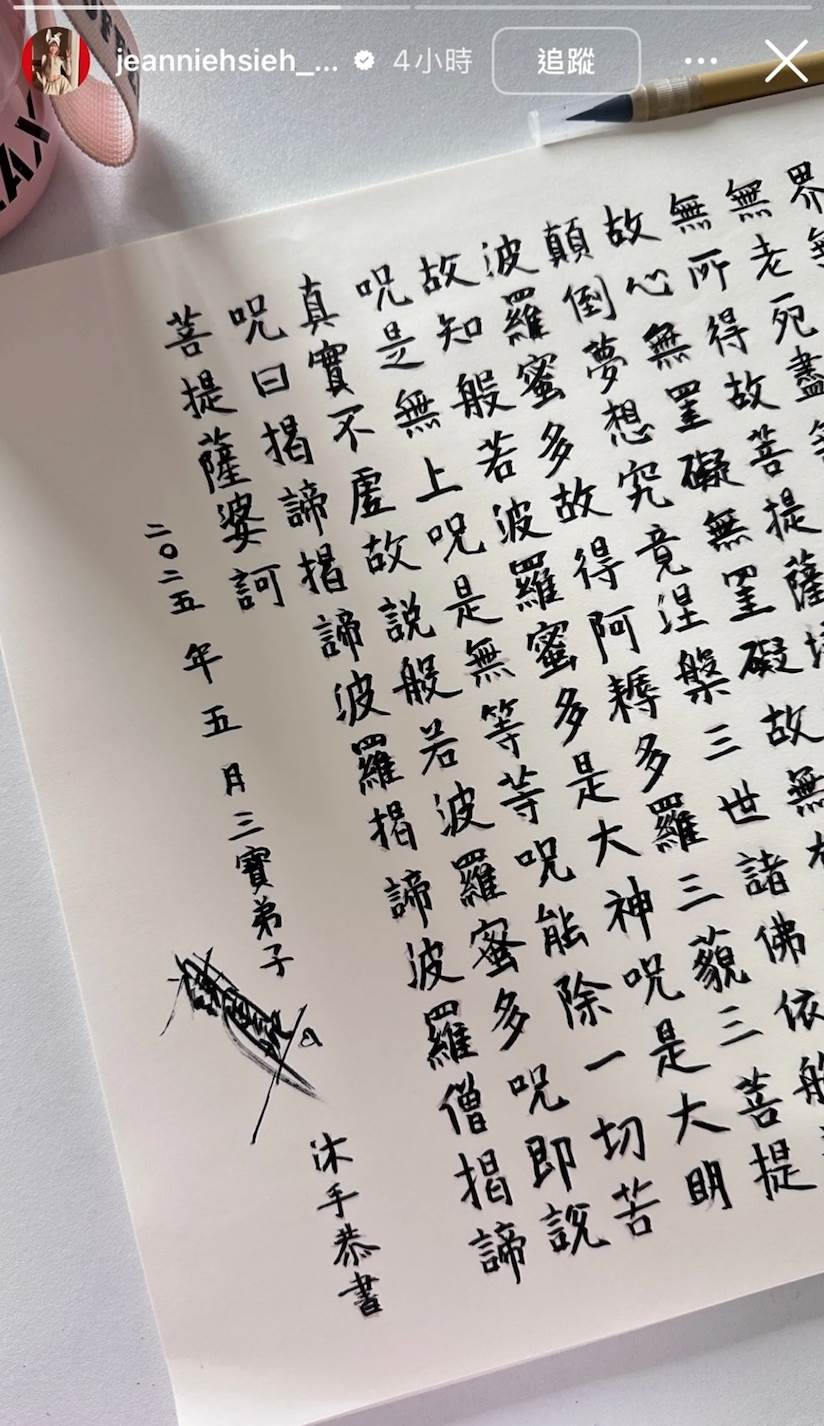 jeanniehsieh_...
4小時
追蹤
界
無老死盡
無所得故菩提薩埵
故心無罣礙無罣礙故無
顛倒夢想究竟涅槃三世諸佛依般
波羅蜜多故得阿耨多羅三藐三菩提
故知般若波羅蜜多是大神呪是大明
呪是無上呪是無等等呪能除一切苦
真實不虛故説般若波羅蜜多呪即説
呪曰揭諦揭諦波羅揭諦波羅僧揭諦
菩提薩婆訶
二〇二五年五月三寶弟子
沐手恭書